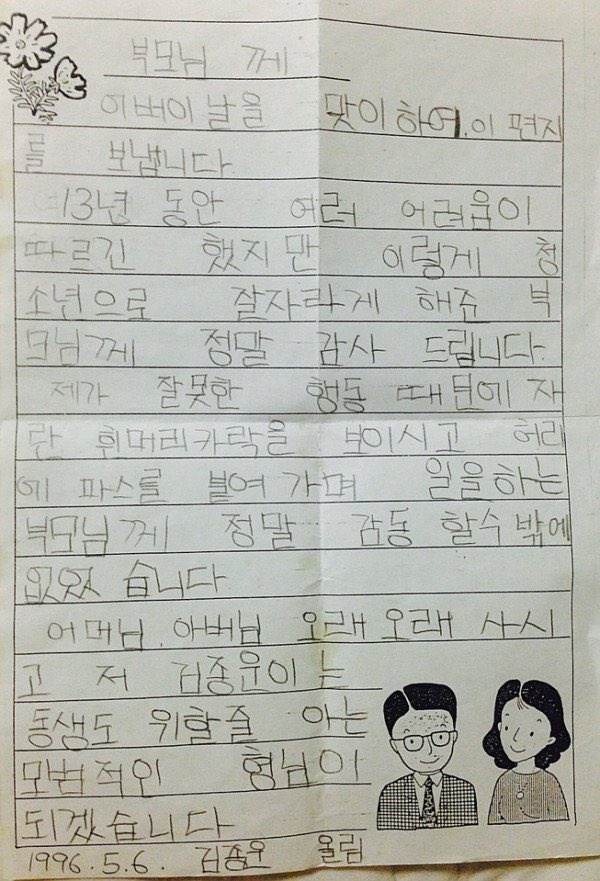 부모님 께
어버이 날을 맞이 하여. 이 편지
를 보냅니다.
13년 동안 여러 어려움이
따르긴 했지만 이렇게 청
소년으로 잘자라게 해준 부
모님께 정말 감사 드립니다.
제가 잘못한 행동 때문에 자
란 흰머리카락을 보이시고 허리
에 파스를 붙여 가며 일을하는
부모님께 정말 감동 할수 밖에
없었 습니다
어머님. 아버님 오래 오래 사시
고 저 김종운이 는
동생도 위할줄 아는
모범적인 형님이
되겠습니다
1996. 5. 6. 김종운 올림